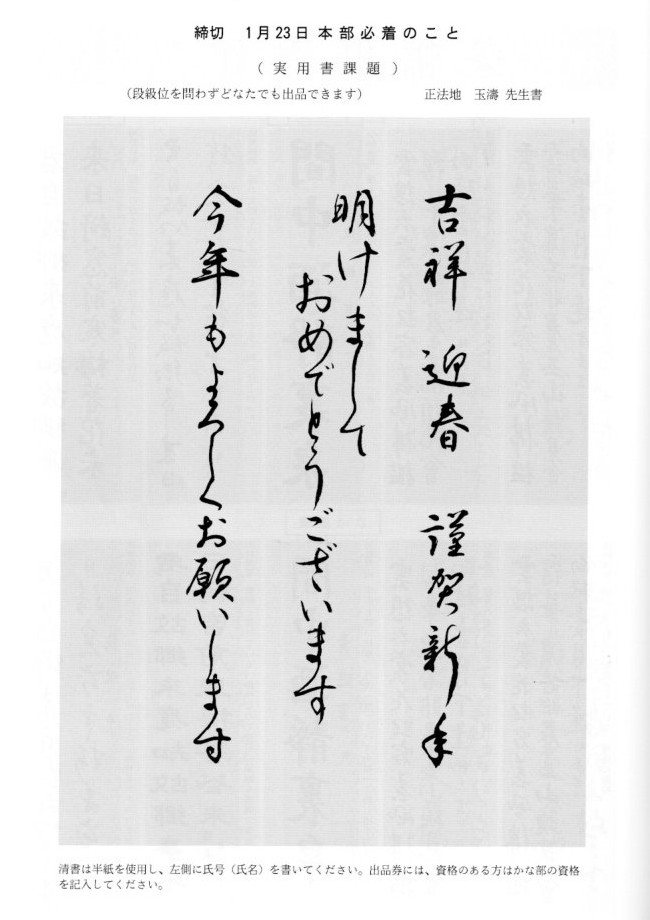 締切　1月23日本部必着のこと
（実用書課題）
（段級位を問わずどなたでも出品できます）　正法地　玉濤 先生書
吉祥　迎春　謹賀新年
明けまして
おめでとうございます
今年もよろしくお願いします
清書は半紙を使用し、左側に氏号（氏名）を書いてください。出品券には、資格のある方はかな部の資格
を記入してください。